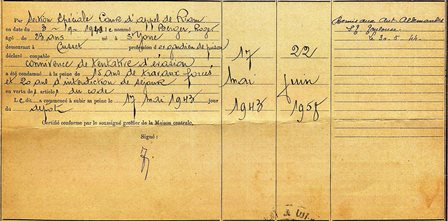 Par Section Spéciale Cour d'appel de Riom
en date du 3-9-1943 le nommé Berger Roger
âgé de 23 ans né à St Yorre
demeurant à Cusset profession d
déclaré coupable
connivence de tentative d'évasion
a été condamné à la peine de 15 ans de travaux forcés
et 20 ans d'interdiction de séjour
en vertu de l'article du code
L a commencé à subir sa peine le 17 mai 1943 jour
du dépôt
Certifié conforme par le soussigné greffier de la Maison centrale.
Signé :
17
mai
1943
22
juin
1958
Remis aux Aut. Allemandes
le 30.5.44